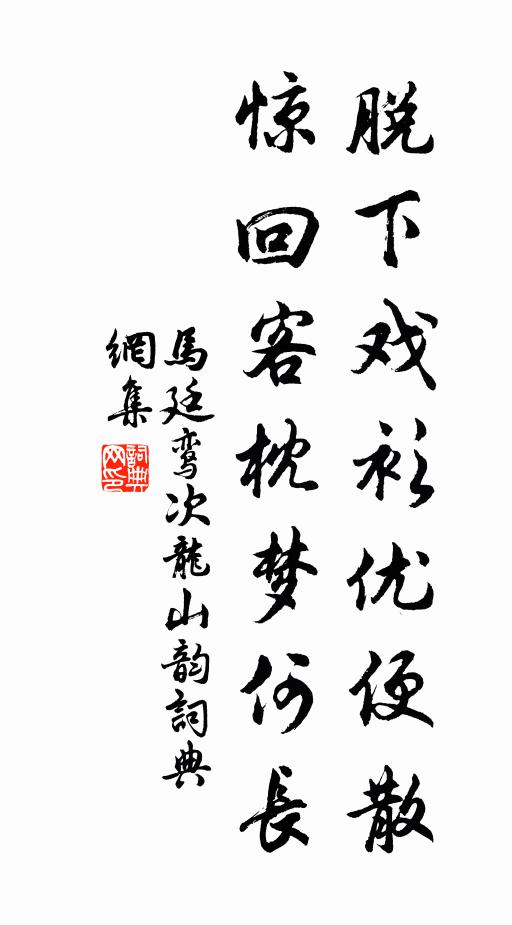 脱下戏衫优便散
惊回客枕梦何長
馬廷鸾次龍山韵詞典
網集
詞典
网印